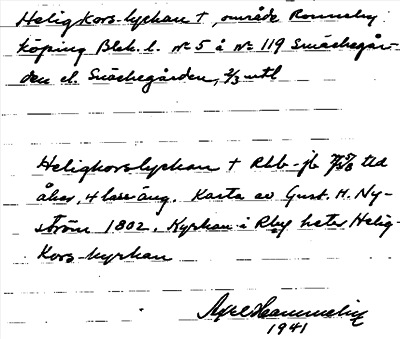 Heligkors-lyckan †, område Ronneby
köping Blek. l. No 5 å No 119 Smedsegår-
den el. Smedsegården, 2/3 mtl
Heligkorslyckan † Rbb-jb tld
åker, 4 lass äng. Karta av Gust. M. Ny-
ström 1802. Kyrkan i Rby heter Helig-
Kors-kyrkan
Axel
1941